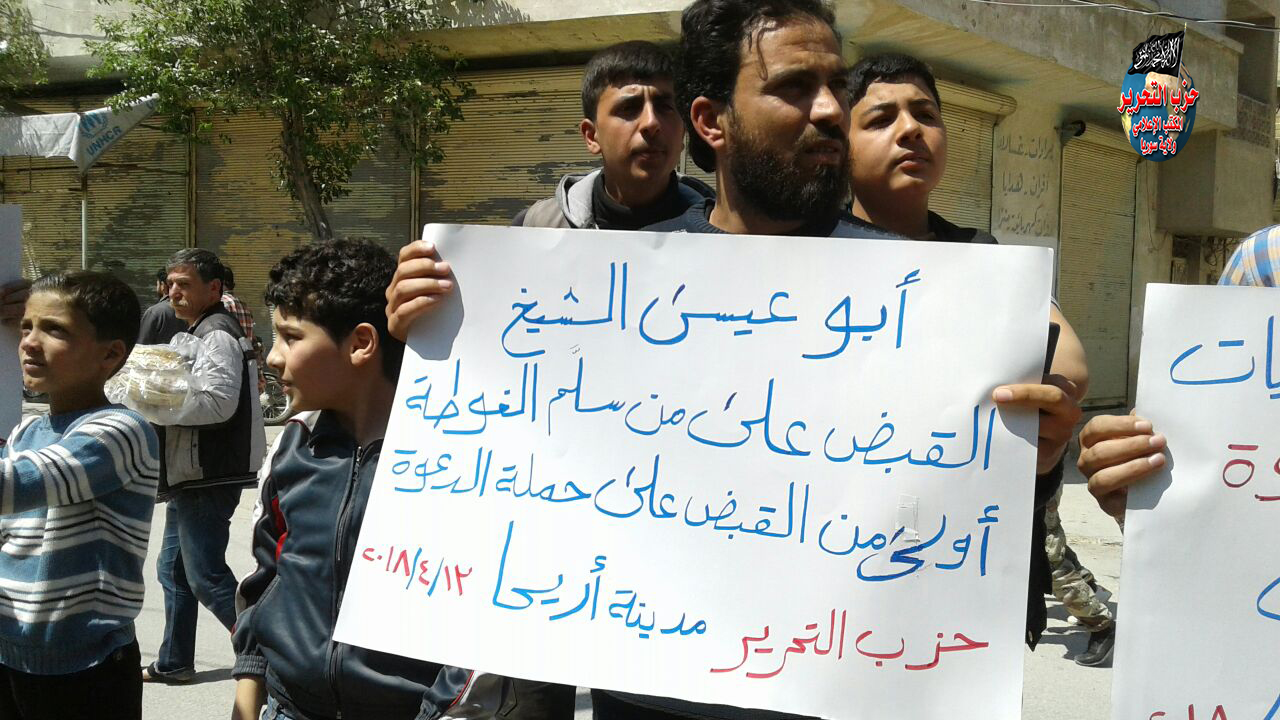 أبو عيسى الشيخ
القبض على من سلّم الغوطة
أولى من القبض على حملة الدعوة
حزب التحرير مدينة أريحا ٢٠١٨/٤/١٢
حزب التحرير
المكتب الإعلامي
ولاية سوريا
UNHCR
يات
وة